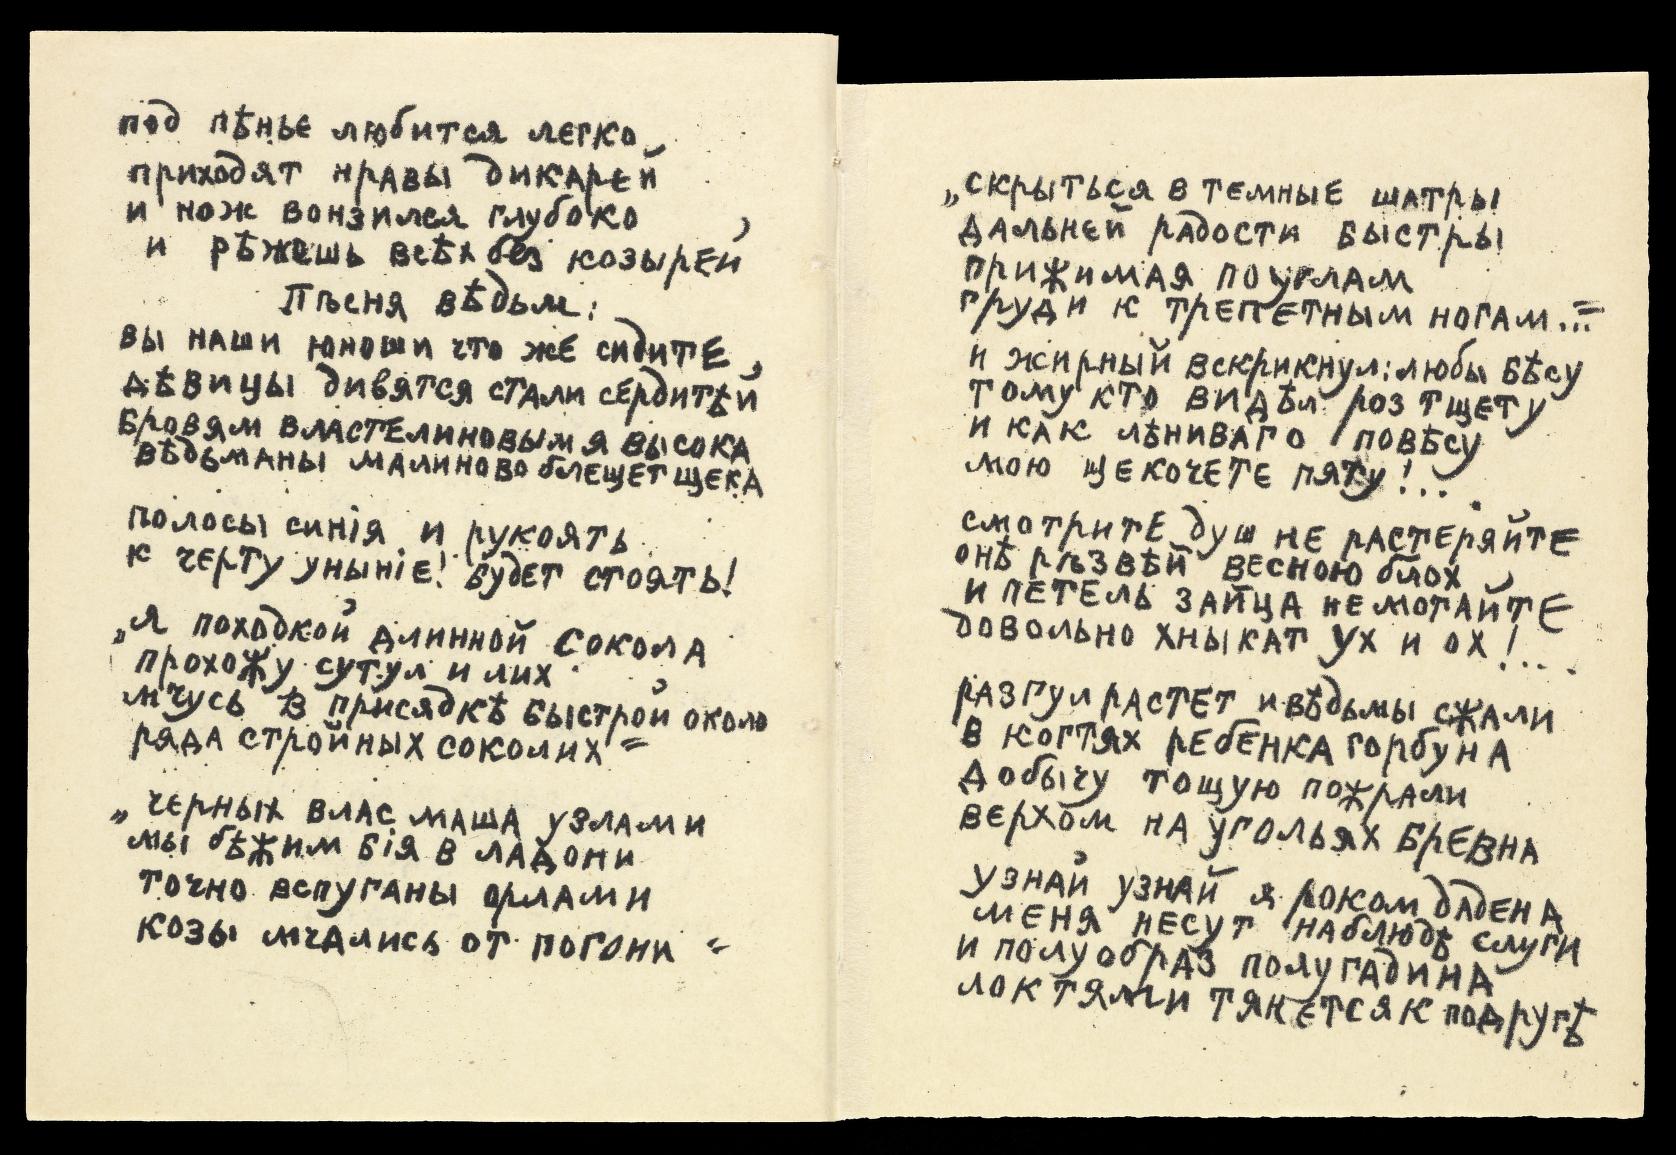 под пѣнье любится легко
приходят нравы дикарей
и нож вонзился глубоко
и рѣжешь всѣх без козырей
Пѣсня вѣдьм:
вы наши юноши что же сидите
дѣвицы дивятся стали сердитѣй
бровям властелиновым я высока
вѣдьманы малиново блещет щека
полосы синія и рукоять
к черту уныніе! будет стоять!
„Я походкой длинной сокола
прохожу сутул и лих
мчусь в присядкѣ быстрой около
ряда стройных соколих =
„черных влас маша узлами
мы бѣжим бія в ладони
точно вспуганы орлами
козы мчались от погони =
„скрыться в темные шатры
дальней радости быстры
прижимая по углам
груди к трепетным ногам...=
и жирный вскрикнул: любы бѣсу
тому кто видѣл роз тщету
и как лѣниваго повѣсу
мою щекочете пяту!...
смотрите душ не растеряйте
онѣ рѣзвѣй весною блох
и петель зайца не мотайте
довольно хныкат ух и ох!...
разгул растет и вѣдьмы сжали
в когтях ребенка горбуна
добычу тощую пожрали
верхом на угольях бревна
узнай узнай я роком дадена
меня несут наблюдѣ слуги
и полуобраз полугадина
локтями тянется к подругѣ